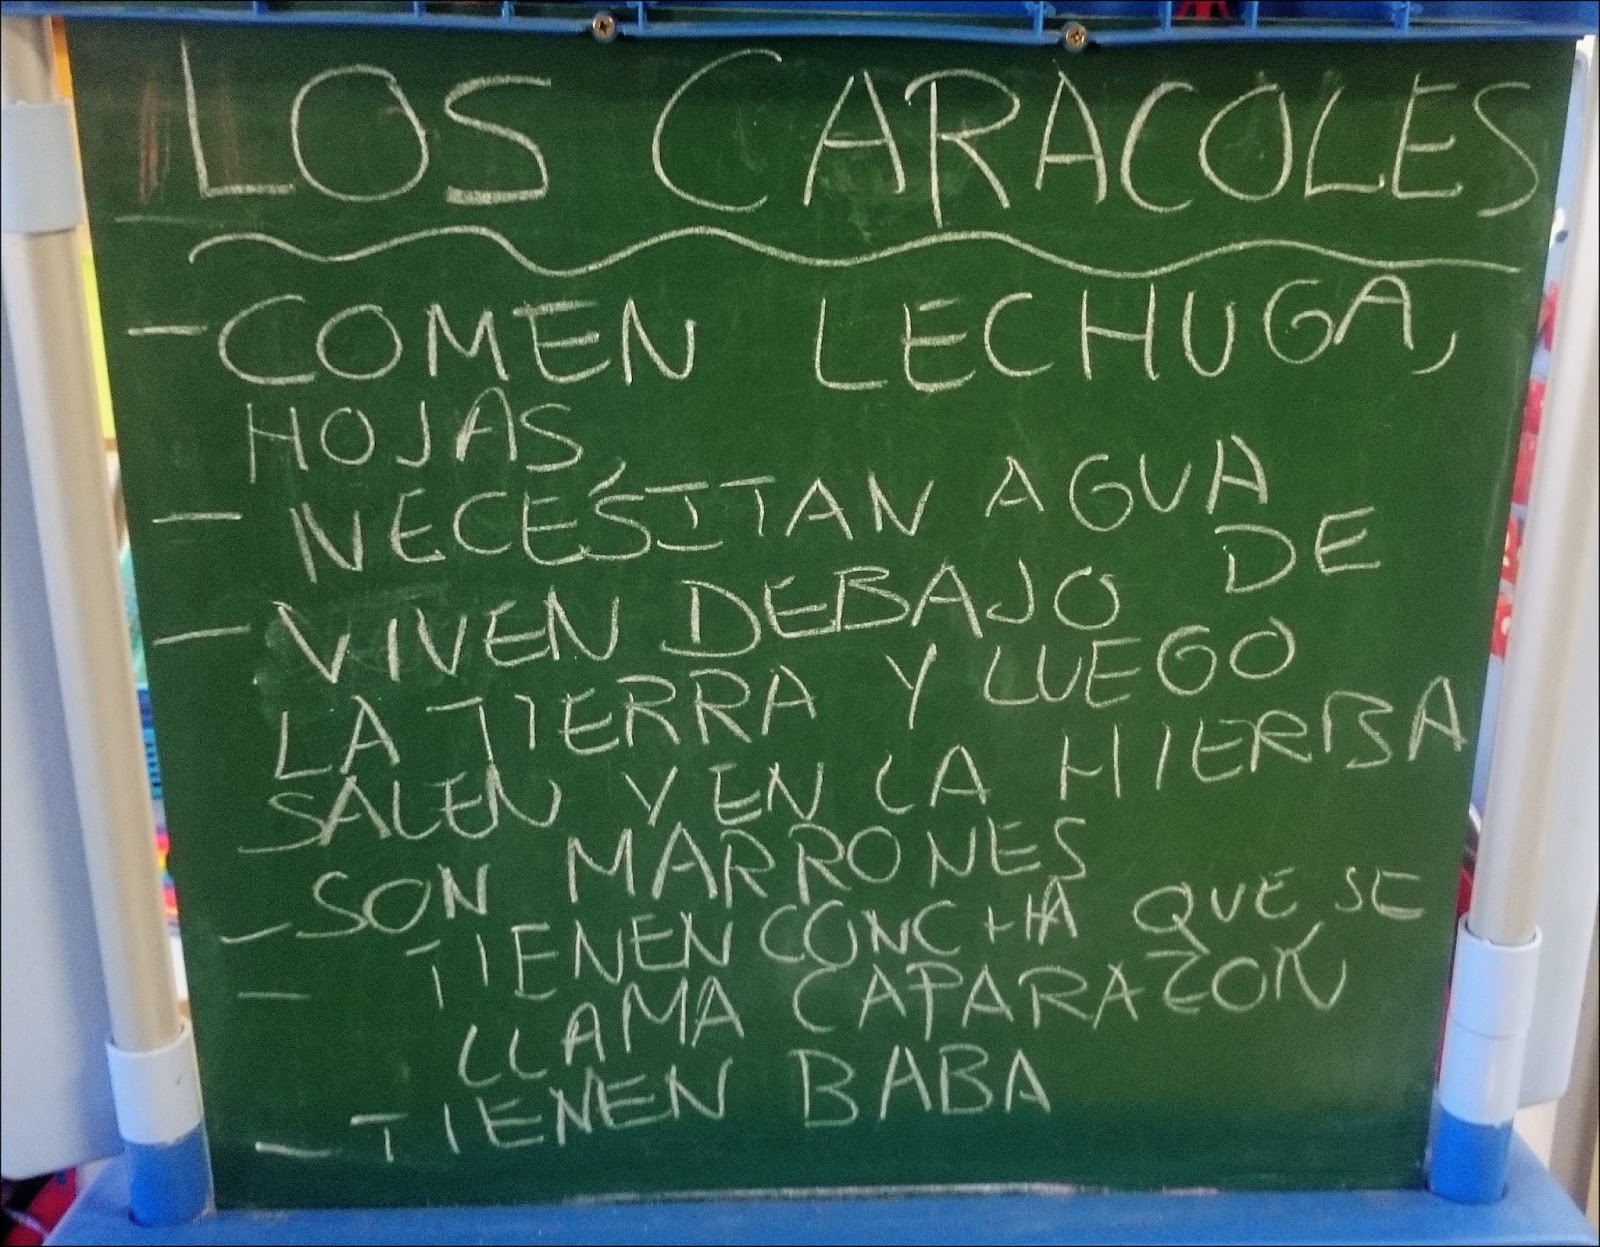 LOS CARACOLES
- COMEN LECHUGA,
HOJAS,
- NECESITAN AGUA
- VIVEN DEBAJO DE
LA TIERRA Y LUEGO
SALEN Y EN LA HIERBA
- SON MARRONES
- TIENEN CONCHA QUE SE
LLAMA CAPARAZON
- TIENEN BABA